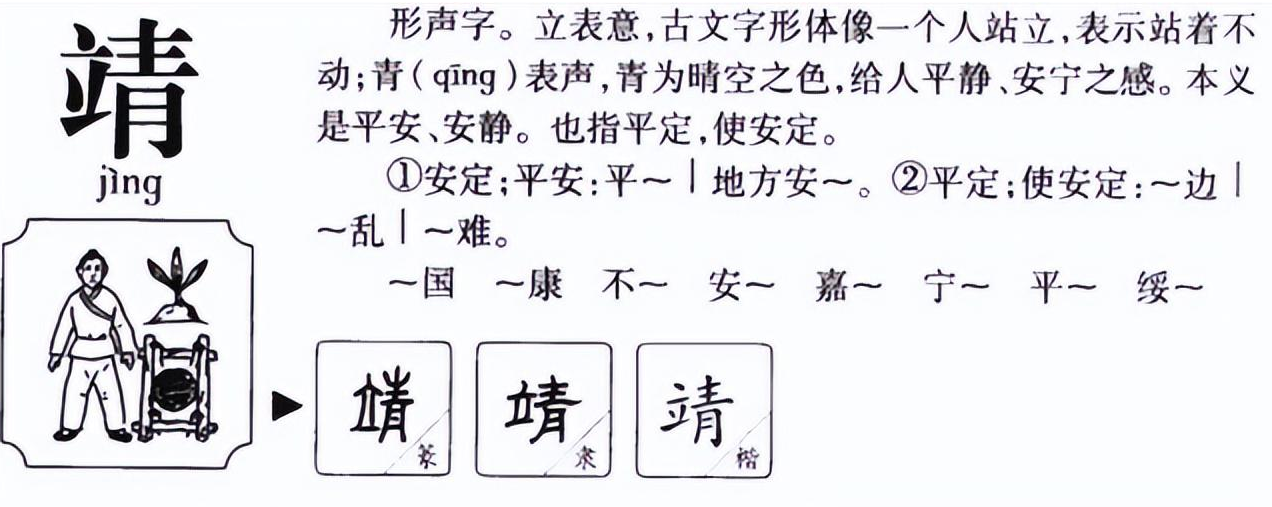 靖
jìng
形声字。立表意,古文字形体像一个人站立,表示站着不
动;青(qīng)表声,青为晴空之色,给人平静、安宁之感。本义
是平安、安静。也指平定,使安定。
①安定;平安:平～｜地方安～。②平定;使安定:～边｜
～乱｜～难。
～国 ～康 不～ 安～ 嘉～ 宁～ 平～ 绥～
靖 篆
靖 隶
靖 楷